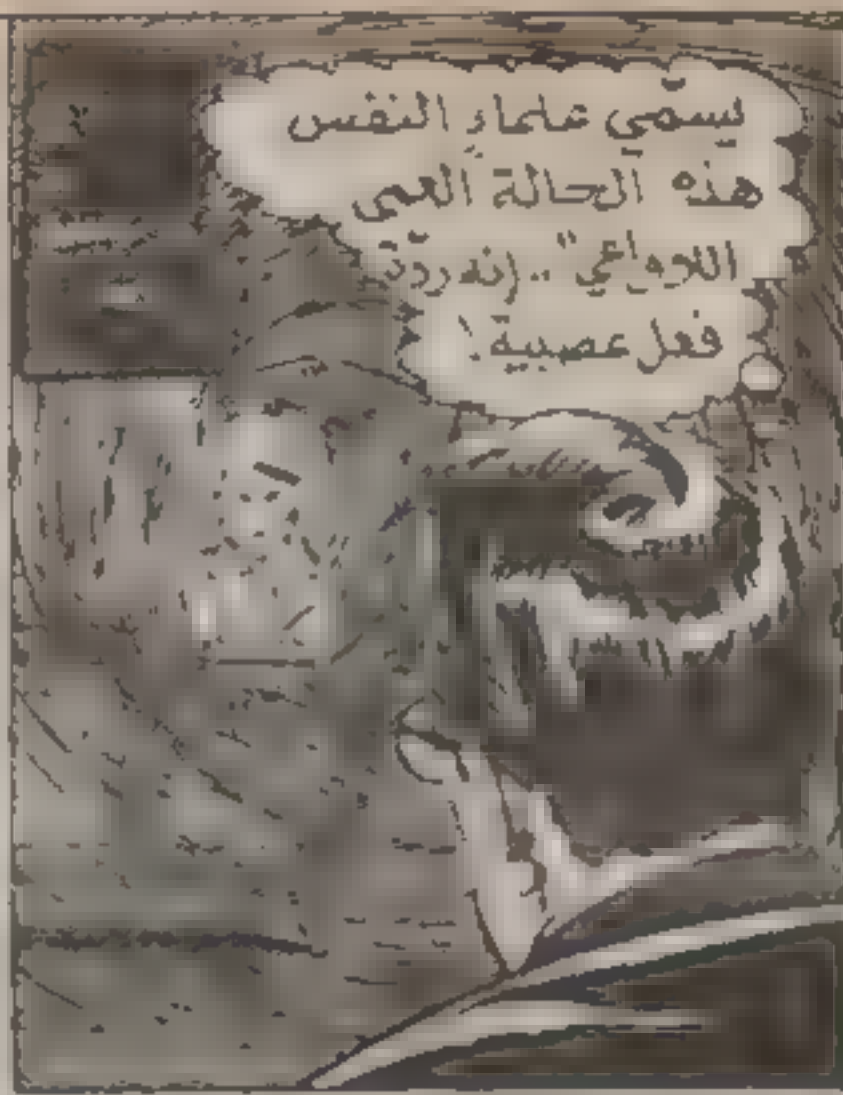 يسمّي علماء النفس
هذه الحالة العمى
اللاواعي".. إنه ردّة
فعل عصبية!